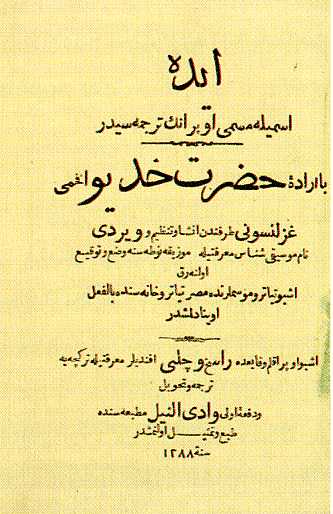 آیده
اسمیله مسمی اوپرانك ترجمه سیدر
با ارادۀ حضرت خدیو افخمی
غزلنسونی طرفندن انشا و تنظیم و ویردی
نام موسیقی شناس معرفتیله موزیقه نوطه سنه وضع و توقیع
اولنه رق
اشبو تیاترو موسملرنده مصر تیاتروخانه سنده بالفعل
اوینادلمشدر
اشبو اوپرا قلم وقایعده راسخ و چلمی افندیلر معرفتیله ترکچه یه
ترجمه و تحویل
و دفعۀ اولی وادی النیل مطبعه سنده
طبع و تمثیل اولنمشدر
سنة ١٢٨٨